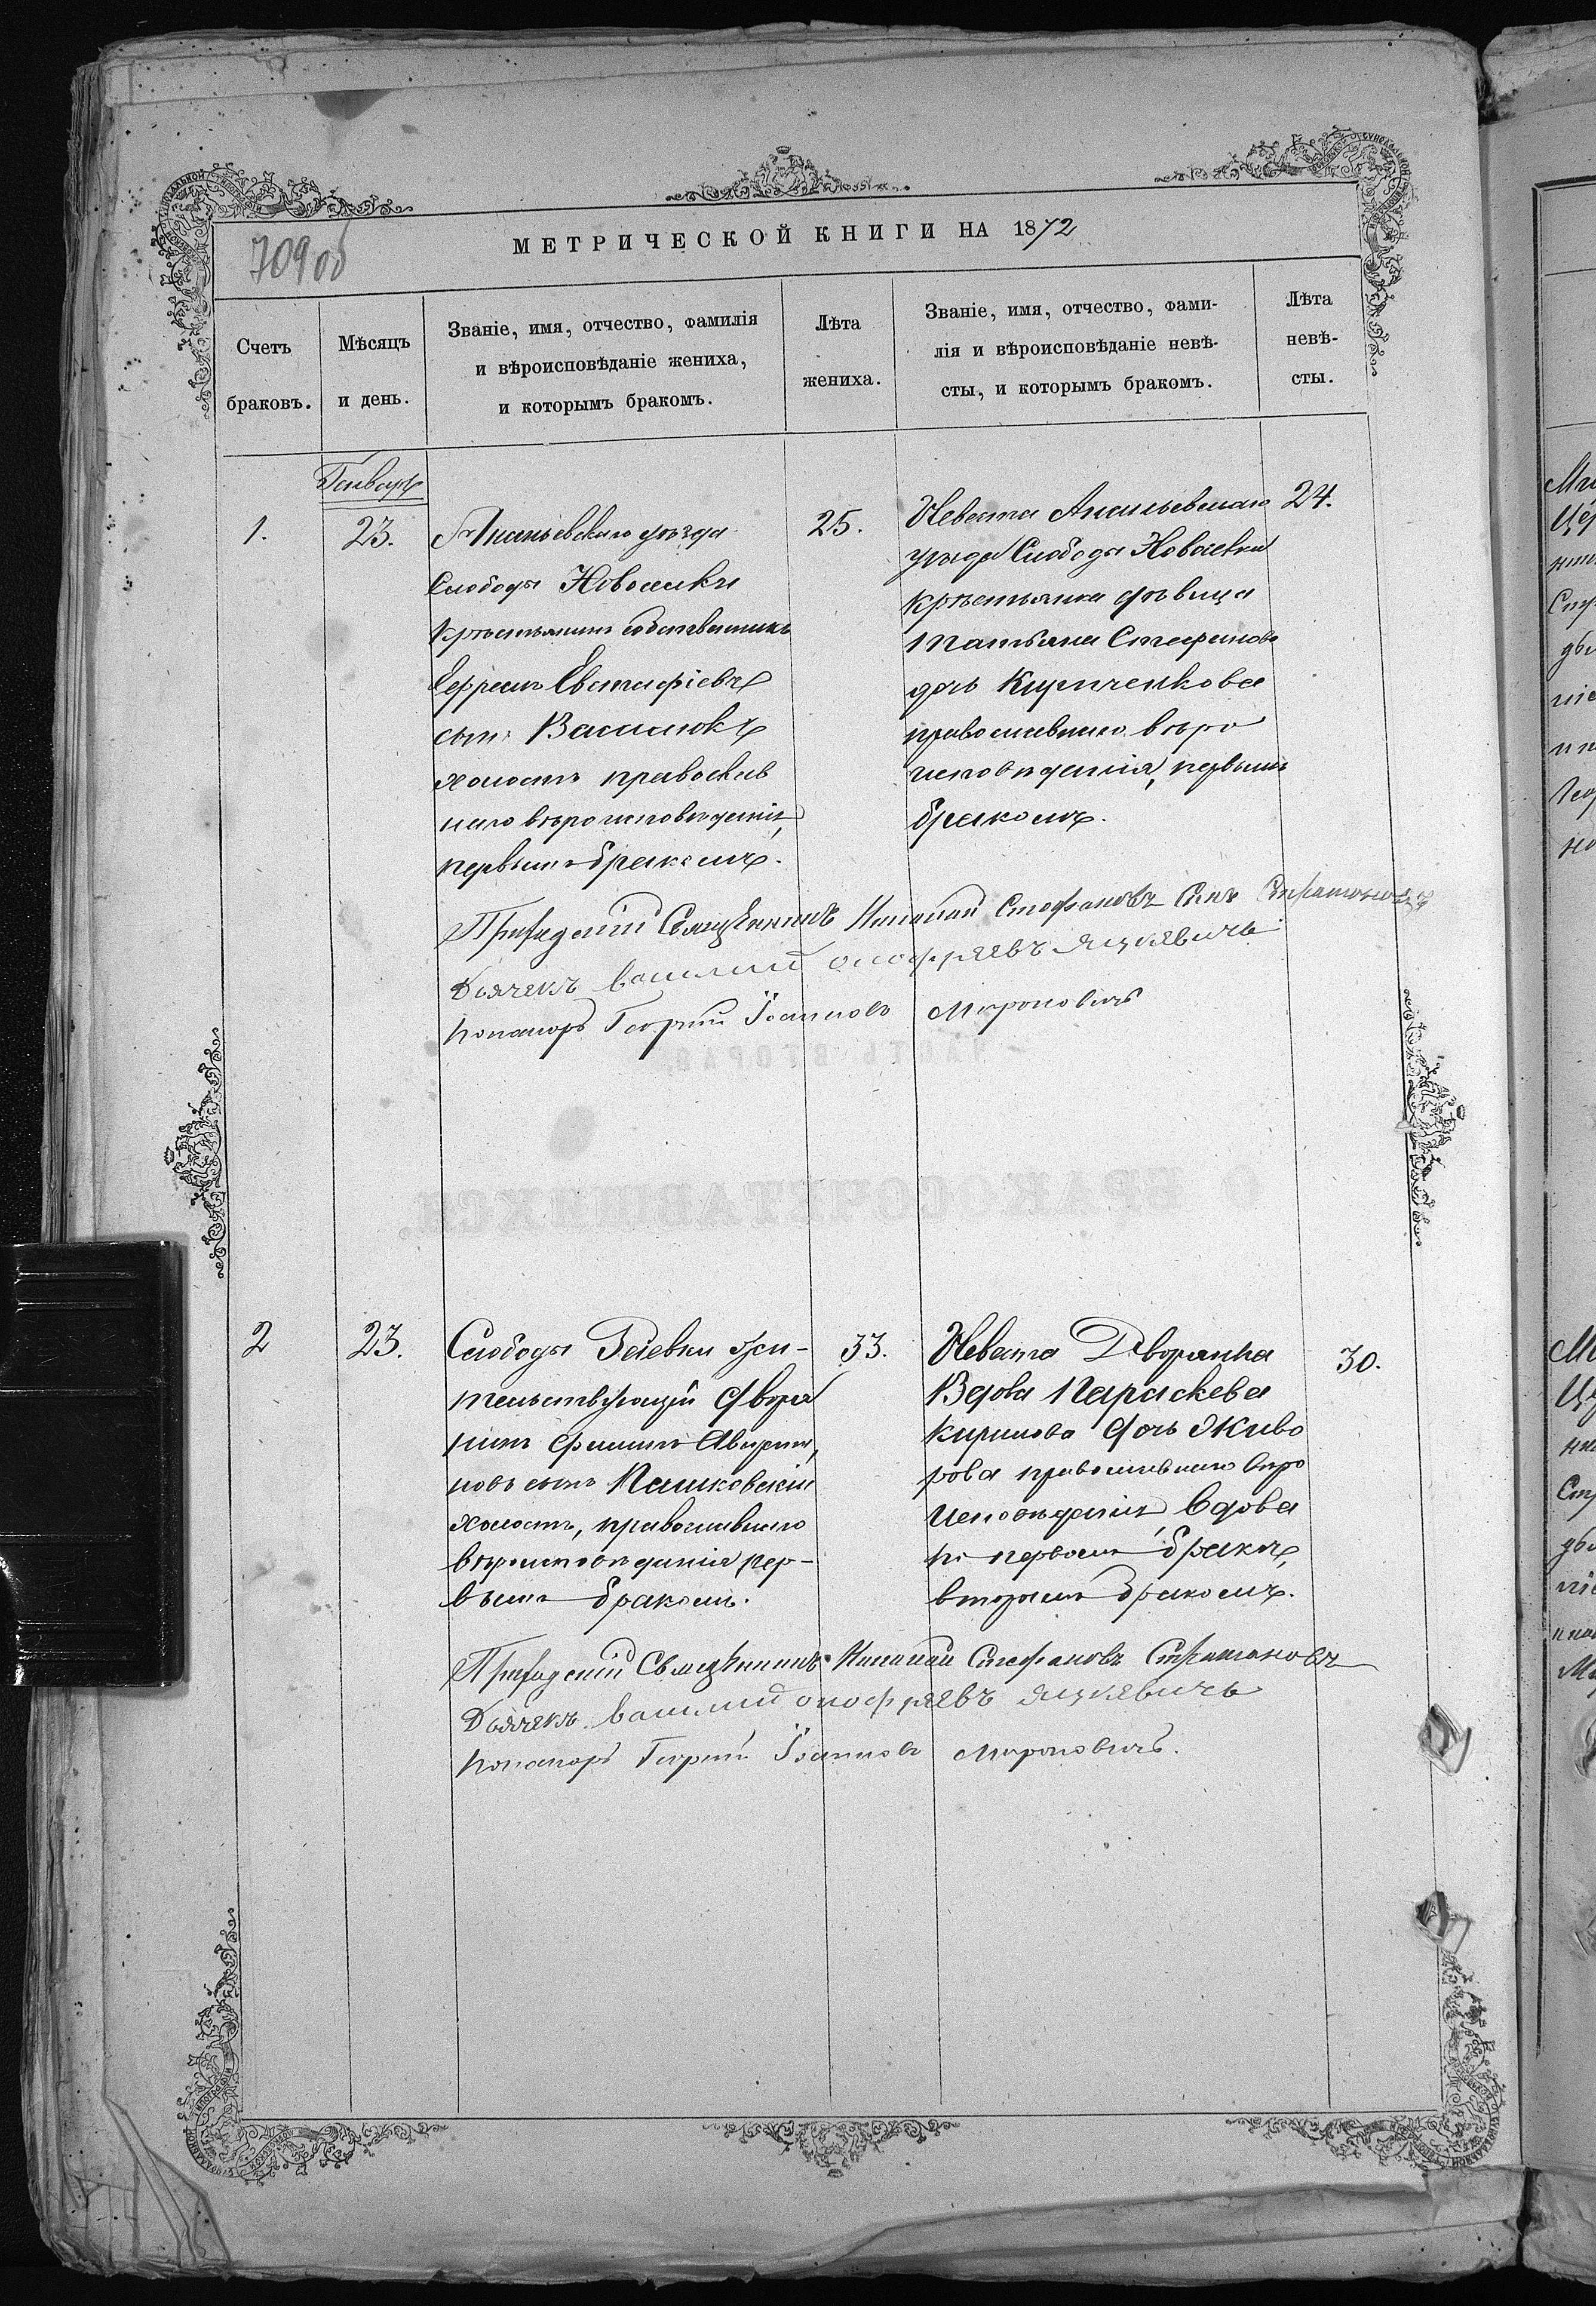 709 об
МЕТРИЧЕСКОЙ КНИГИ НА 1872
Счетъ браковъ.
Мѣсяцъ и день.
Званіе, имя, отчество, фамилія
и вѣроисповѣданіе жениха,
и которымъ бракомъ.
Лѣта
жениха.
Званіе, имя, отчество, фами-
лія и вѣроисповѣданіе невѣ-
сты, и которымъ бракомъ.
Лѣта
невѣ-
сты.
Генварь
1.
23.
Ананьевскаго уѣзда
Слободы Новоселки
Крѣстьянинъ собственникъ
Ефремъ Евстафіевъ
сынъ Василюкъ
холостъ православ
наго вѣроисповѣданія,
первымъ бракомъ.
25.
Невѣста Ананьевскаго
уѣзда Слободы
Крѣстьянка дѣвица
Татьяна Стефанова
дочь Кириченкова
православнаго вѣро
исповѣданія, первымъ
бракомъ.
24.
Приходскій Священникъ Николай Стефановъ Сынъ Стратоновъ
Дьячекъ Василий Онофріевъ Яцкевичь
Пономорь Георгий Іоанновъ Мироновичъ
2
23.
Слободы жи-
тельствующій дворя
нинъ Филипъ
новъ сынъ Пашковскій
холостъ, православнаго
вѣроисповѣданія пер-
вымъ бракомъ.
33.
Невѣста Дворянка
Вдова Параскева
Кирилова дочь Живо
рова православнаго вѣро
исповѣданія, вдова
по первомъ бракѣ,
вторымъ бракомъ.
30.
Приходскій Священникъ Николай Стефановъ Стратоновъ
Дьячекъ Василий Онофріевъ Яцкевичь
Пономорь Георгий Іоанновъ Мироновичъ.